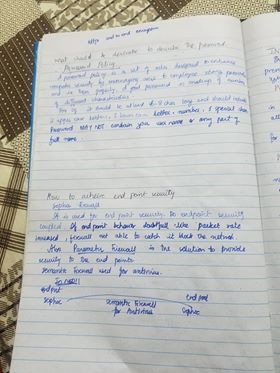 end to end encryption
what should to declare to describe the password
Password Policy
A password policy is a set of rules designed to enhance
computer security by encouraging users to employee strong password
and use them properly. A good password is of number
of different characteristics
it should be at least 8 char long and should include
1 upper case letter, 1 lower case letter, number, 1 special char
Password MAY NOT contain your user name or any part of
full name.
How to achieve end point security
Sophos Firewall
It is used for end point security. So endpoint security
if endpoint behavior doubtfull like packet rate
increased, firewall not able to catch it block the network
Firewall is the solution to provide
security to the end points
semantic Firewall used for antivirus.
endpoint
end point
Sophos
semantic Firewall
for Antivirus
Sophos